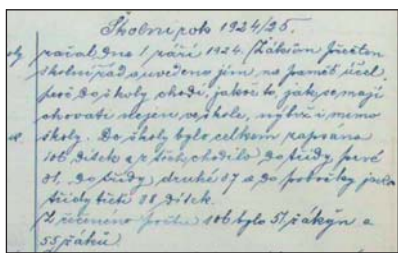 Školní rok 1924/25.
začal dne 1 září 1924. Žákům přečten
školní řád a uvedeno jim na paměť účel,
proč do školy chodí, jakož to, jak se mají
chovati nejen ve škole, nýbrž i mimo
školy. Do školy bylo celkem zapsáno
106 dítek a z těch chodilo do třídy prvé
31, do třídy druhé 37 a do pobočky jako
třídy třetí 38 dítek.
Z řečeného počtu 106 bylo 51 žákyň a
55 žáků.